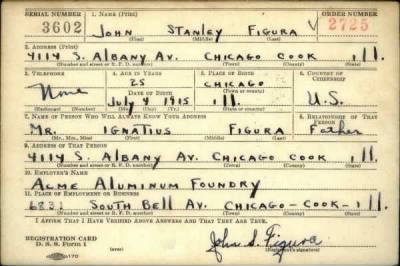 SERIAL NUMBER 1. NAME (Print) ORDER NUMBER
3602 JOHN STANLEY FIGURA V 2725
(First) (Middle) (Last)
2. ADDRESS (Print)
4114 S. ALBANY AV. CHICAGO COOK Ill.
(Number and street or R. F. D. number) (Town) (County) (State)
3. TELEPHONE 4. AGE IN YEARS 5. PLACE OF BIRTH 6. COUNTRY OF CITIZENSHIP
None 25 CHICAGO
DATE OF BIRTH (Town or county)
July 4 1915 Ill. U.S.
(Exchange) (Number) (Mo.) (Day) (Yr.) (State or country)
7. NAME OF PERSON WHO WILL ALWAYS KNOW YOUR ADDRESS 8. RELATIONSHIP OF THAT PERSON
MR. IGNATIUS FIGURA Father
(Mr., Mrs., Miss) (First) (Middle) (Last)
9. ADDRESS OF THAT PERSON
4114 S. ALBANY AV. CHICAGO COOK Ill.
(Number and street or R. F. D. number) (Town) (County) (State)
10. EMPLOYER'S NAME
ACME ALUMINUM FOUNDRY
11. PLACE OF EMPLOYMENT OR BUSINESS
SOUTH BELL AV. CHICAGO-COOK-Ill.
(Number and street or R. F. D. number) (Town) (County) (State)
I AFFIRM THAT I HAVE VERIFIED ABOVE ANSWERS AND THAT THEY ARE TRUE.
REGISTRATION CARD
D. S. S. Form 1 (over) John S. Figura
(Registrant's signature)